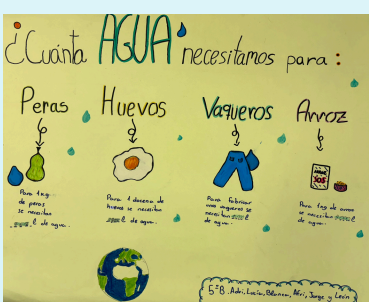 ¿Cuánta AGUA necesitamos para:
Peras Huevos Vaqueros Arroz
Para 1 kg
de peras
se necesitan
l de agua.
Para 1 docena de
huevos se necesitan
l de agua.
Para fabricar
unos vaqueros se
necesitan l
de agua.
Para 1kg de arroz
se necesitan l
de agua.
SOS
5ºB. Adri, Lucía, Blanca, Afri, Jorge y León